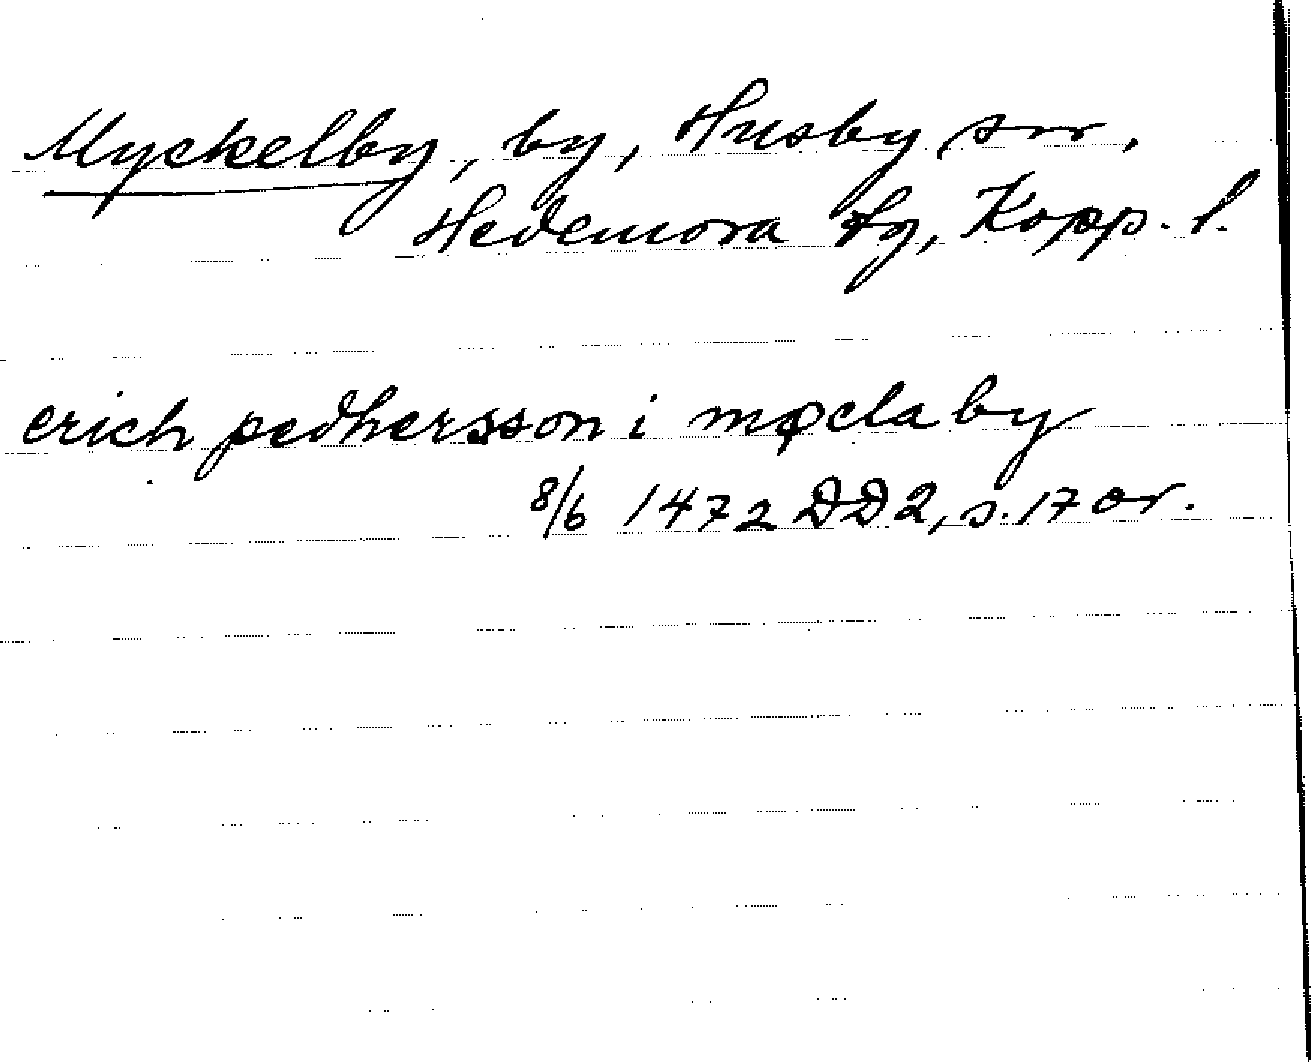 Myckelby, by, Husby sn,
Hedemora tg, Kopp. l.
erich pedhersson i møclaby
8/6 1472 DD2, s. 17 or.